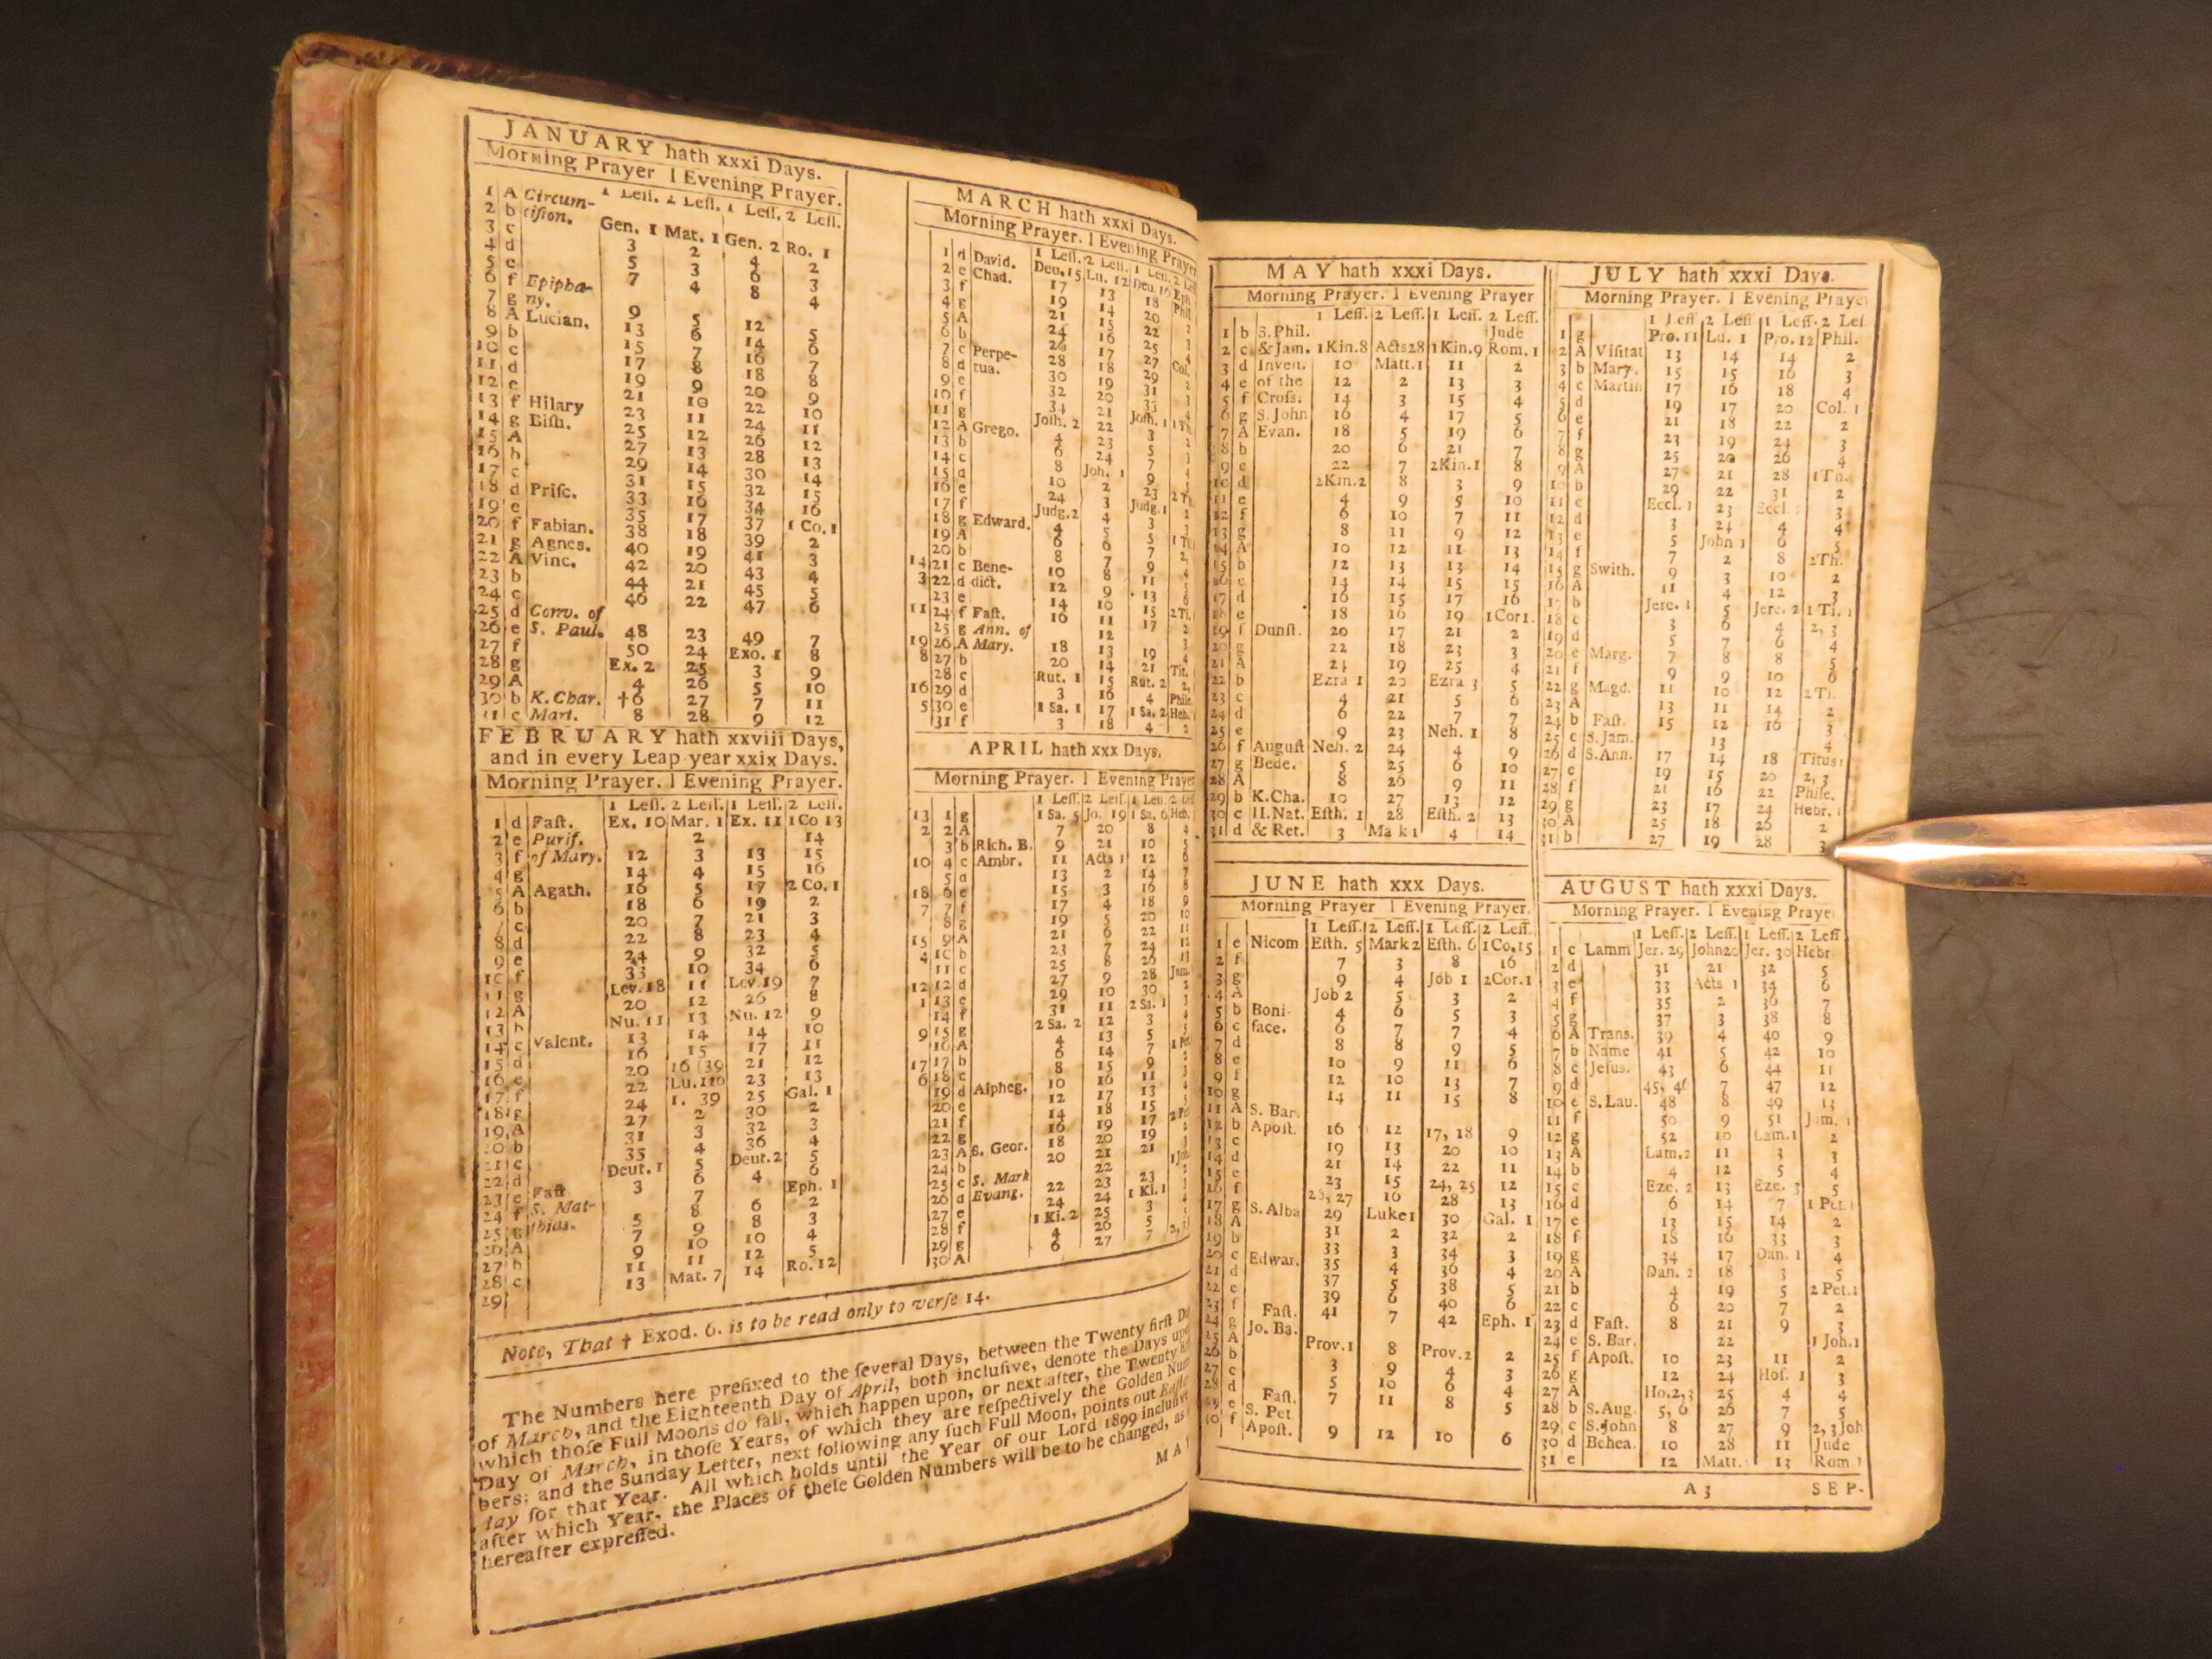 JANUARY hath xxxi Days.
Morning Prayer | Evening Prayer.
1 Leſſ. 2 Leſſ. 1 Leſſ. 2 Leſſ.
1 A Circum-
2 b ciſion. Gen. 1 Mat. 1 Gen. 2 Ro. 1
3 c 3 2 4 2
4 d 5 3 6 3
5 e 7 4 8 4
6 f Epipha-
7 g ny. 9 5 12 5
8 A Lucian. 13 6 14 6
9 b 15 7 16 7
10 c 17 8 18 8
11 d 19 9 20 9
12 e 21 10 22 10
13 f Hilary 23 11 24 11
14 g Biſh. 25 12 26 12
15 A 27 13 28 13
16 b 29 14 30 14
17 c 31 15 32 15
18 d Priſc. 33 16 34 16
19 e 35 17 37 1 Co. 1
20 f Fabian. 38 18 39 2
21 g Agnes. 40 19 41 3
22 A Vinc. 42 20 43 4
23 b 44 21 45 5
24 c 46 22 47 6
25 d Conv. of
26 e S. Paul. 48 23 49 7
27 f 50 24 Exo. 1 8
28 g Ex. 2 25 3 9
29 A 4 26 5 10
30 b K. Char. †6 27 7 11
31 c Mart. 8 28 9 12
FEBRUARY hath xxviii Days,
and in every Leap year xxix Days.
Morning Prayer. | Evening Prayer.
1 Leſſ. 2 Leſſ. 1 Leſſ. 2 Leſſ.
1 d Faſt. Ex. 10 Mar. 1 Ex. 11 1 Co 13
2 e Purif. 2 14
3 f of Mary. 12 3 13 15
4 g 14 4 15 16
5 A Agath. 16 5 17 2 Co. 1
6 b 18 6 19 2
7 c 20 7 21 3
8 d 22 8 23 4
9 e 24 9 32 5
10 f 33 10 34 6
11 g Lev. 18 11 Lev. 19 7
12 A 20 12 26 8
13 b Nu. 11 13 Nu. 12 9
14 c Valent. 13 14 14 10
15 d 16 15 17 11
16 e 20 16 21 12
17 f 22 23 13
18 g 24 1. 39 25 Gal. 1
19 A 27 2 30 2
20 b 31 3 32 3
21 c 35 4 36 4
22 d Deut. 1 5 Deut. 2 5
23 e Faſt 3 6 4 6
24 f S. Mat- 7 Eph. 1
25 g thias. 5 8 6 2
26 A 7 9 8 3
27 b 9 10 10 4
28 c 11 11 12 5
29 13 Mat. 7 14 Ro. 12
MARCH hath xxxi Days.
Morning Prayer. | Evening Prayer
1 Leſſ. 2 Leſſ. 1 Leſſ.
1 d David. Deu. 15 Lu. 12 Deu. 16
2 e Chad. 17 13 18
3 f 19 14 20
4 g 21 15 22
5 A 24 16 25
6 b 26 17 27
7 c Perpe- 28 18 29
8 d tua. 30 19 31
9 e 32 20 33
10 f 34 21 Joſh. 1
11 g Joſh. 2 22 3
12 A Grego. 4 23
13 b 6 24
14 c 8 Joh. 1 7
15 d 10 2 9
16 e 24 3 23
17 f Judg. 2 4 Judg. 1
18 g Edward. 4 5 3
19 A 6 6 5
20 b 8 7 7
14 21 c Bene- 10 8 9
3 22 d dict. 12 9 11
23 e 14 10 13
11 24 f Faſt. 16 11 15
25 g Ann. of 12 17
19 26 A Mary. 18 13 19
8 27 b 20 14 21
28 c Rut. 1 15 Rut. 2
16 29 d 3 16 4
5 30 e 1 Sa. 1 17 1 Sa. 2
31 f 3 18 4
APRIL hath xxx Days.
Morning Prayer. | Evening Prayer
1 Leſſ. 2 Leſſ. 1 Leſſ.
13 1 g 1 Sa. 5 Jo. 19 1 Sa. 6 Heb.
2 2 A 7 20 8 4
3 b Rich. B. 9 21 10 5
10 4 c Ambr. 11 Acts 1 12 6
5 d 13 2 14 7
18 6 e 15 3 16 8
7 7 f 17 4 18 9
8 g 19 5 20 10
15 9 A 21 6 22 11
4 10 b 23 7 24 12
11 c 25 8 26 13
12 12 d 27 9 28
1 13 e 29 10 30
14 f 31 11 2 Sa. 1
9 15 g 2 Sa. 2 12 3
16 A 4 13 5
17 17 b 6 14 7
6 18 c 8 15 9
19 d Alpheg. 10 16 11
20 e 12 17 13
21 f 14 18 15
22 g 16 19 17
23 A S. Geor. 18 20 19
24 b 20 21 21
25 c S. Mark 22
26 d Evang. 22 23 23
27 e 24 24 1 Ki. 1
28 f 1 Ki. 2 25 3
29 g 4 26 5
30 A 6 27 7
Note, That † Exod. 6. is to be read only to verſe 14.
The Numbers here prefixed to the ſeveral Days, between the Twenty firſt
of March, and the Eighteenth Day of April, both incluſive, denote the Days
which thoſe Full Moons do fall, which happen upon, or next after, the Twenty
Day of March, in thoſe Years, of which they are reſpectively the Golden Num
bers; and the Sunday Letter, next following any ſuch Full Moon, points out
day for that Year. All which holds until the Year of our Lord 1899 incluſive
after which Year, the Places of theſe Golden Numbers will be to be changed, as
hereafter expreſſed.
MAY hath xxxi Days.
Morning Prayer. | Evening Prayer
1 Leſſ. 2 Leſſ. 1 Leſſ. 2 Leſſ.
1 b S. Phil. Jude
2 c & Jam. 1 Kin. 8 Acts 28 1 Kin. 9 Rom. 1
3 d Inven. 10 Matt. 1 11 2
4 e of the 12 2 13 3
5 f Croſs. 14 3 15 4
6 g S. John 16 4 17 5
7 A Evan. 18 5 19 6
8 b 20 6 21 7
9 c 22 7 2 Kin. 1 8
10 d 2 Kin. 2 8 3 9
11 e 4 9 5 10
12 f 6 10 7 11
13 g 8 11 9 12
14 A 10 12 11 13
15 b 12 13 13 14
16 c 14 14 15 15
17 d 16 15 17 16
18 e 18 16 19 1 Cor 1.
19 f Dunſt. 20 17 21 2
20 g 22 18 23 3
21 A 24 19 25 4
22 b Ezra 1 20 Ezra 3 5
23 c 4 21 5 6
24 d 6 22 7 7
25 e 9 23 Neh. 1 8
26 f Auguſt Neh. 2 24 4 9
27 g Bede. 5 25 6 10
28 A 8 26 9 11
29 b K. Cha. 10 27 13 12
30 c II. Nat. Eſth. 1 28 Eſth. 2 13
31 d & Ret. 3 Ma k 1 4 14
JUNE hath xxx Days.
Morning Prayer | Evening Prayer.
1 Leſſ. 2 Leſſ. 1 Leſſ. 2 Leſſ.
1 e Nicom Eſth. 5 Mark 2 Eſth. 6 1 Co. 15
2 f 7 3 8 16
3 g 9 4 Job 1 2 Cor. 1
4 A Job 2 5 3 2
5 b Boni- 4 6 5 3
6 c face. 6 7 7 4
7 d 8 8 9 5
8 e 10 9 11 6
9 f 12 10 13 7
10 g 14 11 15 8
11 A S. Bar.
12 b Apoſt. 16 12 17, 18 9
13 c 19 13 20 10
14 d 21 14 22 11
15 e 23 15 24, 25 12
16 f 26, 27 16 28 13
17 g S. Alba 29 Luke 1 30 Gal. 1
18 A 31 2 32 2
19 b 33 3 34 3
20 c Edwar. 35 4 36 4
21 d 37 5 38 5
22 e 39 6 40 6
23 f Faſt. 41 7 42 Eph. 1
24 g Jo. Ba.
25 A Prov. 1 8 Prov. 2 2
26 b 3 9 4 3
27 c 5 10 6 4
28 d Faſt. 7 11 8 5
29 e S. Pet
30 f Apoſt. 9 12 10 6
JULY hath xxxi Days.
Morning Prayer. | Evening Praye
1 Leſſ 2 Leſſ 1 Leſſ. 2 Leſ
1 g Pro. 11 Lu. 1 Pro. 12 Phil.
2 A Viſitat 13 14 14 2
3 b Mary. 15 15 16 3
4 c Martin 17 16 18 4
5 d 19 17 20 Col. 1
6 e 21 18 22 2
7 f 23 19 24 3
8 g 25 20 26 4
9 A 27 21 28 1 Th.
10 b 29 22 31 2
11 c Eccl. 1 23 Eccl. 3
12 d 3 24 4 4
13 e 5 John 1 6 5
14 f 7 2 8 2 Th.
15 g Swith. 9 3 10 2
16 A 11 4 12 3
17 b Jere. 1 5 Jere. 2 1 Ti. 1
18 c 3 6 4 2, 3
19 d 5 7 6 4
20 e Marg. 7 8 8 5
21 f 9 9 10 6
22 g Magd. 11 10 12 2 Ti.
23 A 13 11 14 2
24 b Faſt. 15 12 16 3
25 c S. Jam. 13 4
26 d S. Ann. 17 14 18 Titus 1
27 e 19 15 20 2, 3
28 f 21 16 22 Phile.
29 g 23 17 24 Hebr. 1
30 A 25 18 26 2
31 b 27 19 28 3
AUGUST hath xxxi Days.
Morning Prayer. | Evening Praye
1 Leſſ. 2 Leſſ. 1 Leſſ. 2 Leſſ
1 c Lamm Jer. 29 John 20 Jer. 30 Hebr
2 d 31 21 32 5
3 e 33 Acts 1 34 6
4 f 35 2 36 7
5 g 37 3 38 8
6 A Trans. 39 4 40 9
7 b Name 41 5 42 10
8 c Jeſus. 43 6 44 11
9 d 45, 46 7 47 12
10 e S. Lau. 48 8 49 13
11 f 50 9 51 Jam. 1
12 g 52 10 Lam. 1 2
13 A Lam. 2 11 3 3
14 b 4 12 5 4
15 c Eze. 2 13 Eze. 3 5
16 d 6 14 7 1 Pet. 1
17 e 13 15 14 2
18 f 18 16 33 3
19 g 34 17 Dan. 1 4
20 A Dan. 2 18 3 5
21 b 4 19 5 2 Pet. 1
22 c 6 20 7 2
23 d Faſt. 8 21 9 3
24 e S. Bar. 22 1 Joh. 1
25 f Apoſt. 10 23 11 2
26 g 12 24 Hoſ. 1 3
27 A Ho. 2, 3 25 4 4
28 b S. Aug. 5, 6 26 7 5
29 c S. John 8 27 9 2, 3 Joh
30 d Behea. 10 28 11 Jude
31 e 12 Matt. 13 Rom 1
A 3 SEP-